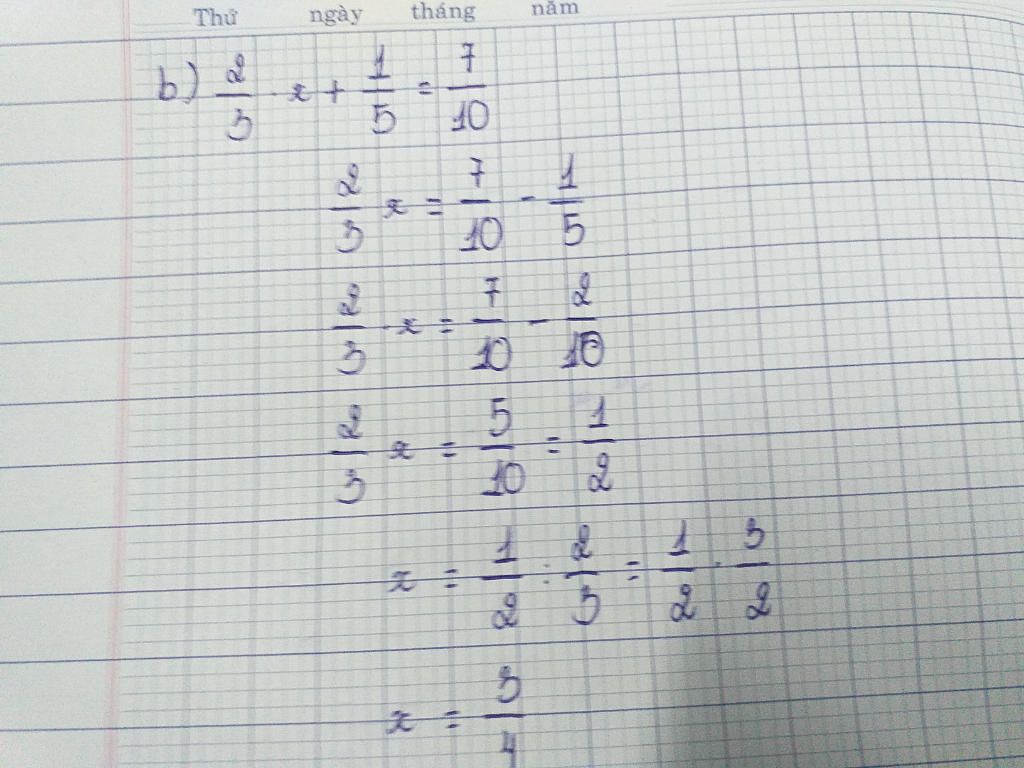 Thứ ngày tháng năm
b) 2/3 · x + 1/5 = 7/10
2/3 x = 7/10 - 1/5
2/3 · x = 7/10 - 2/10
2/3 x = 5/10 = 1/2
x = 1/2 : 2/3 = 1/2 · 3/2
x = 3/4